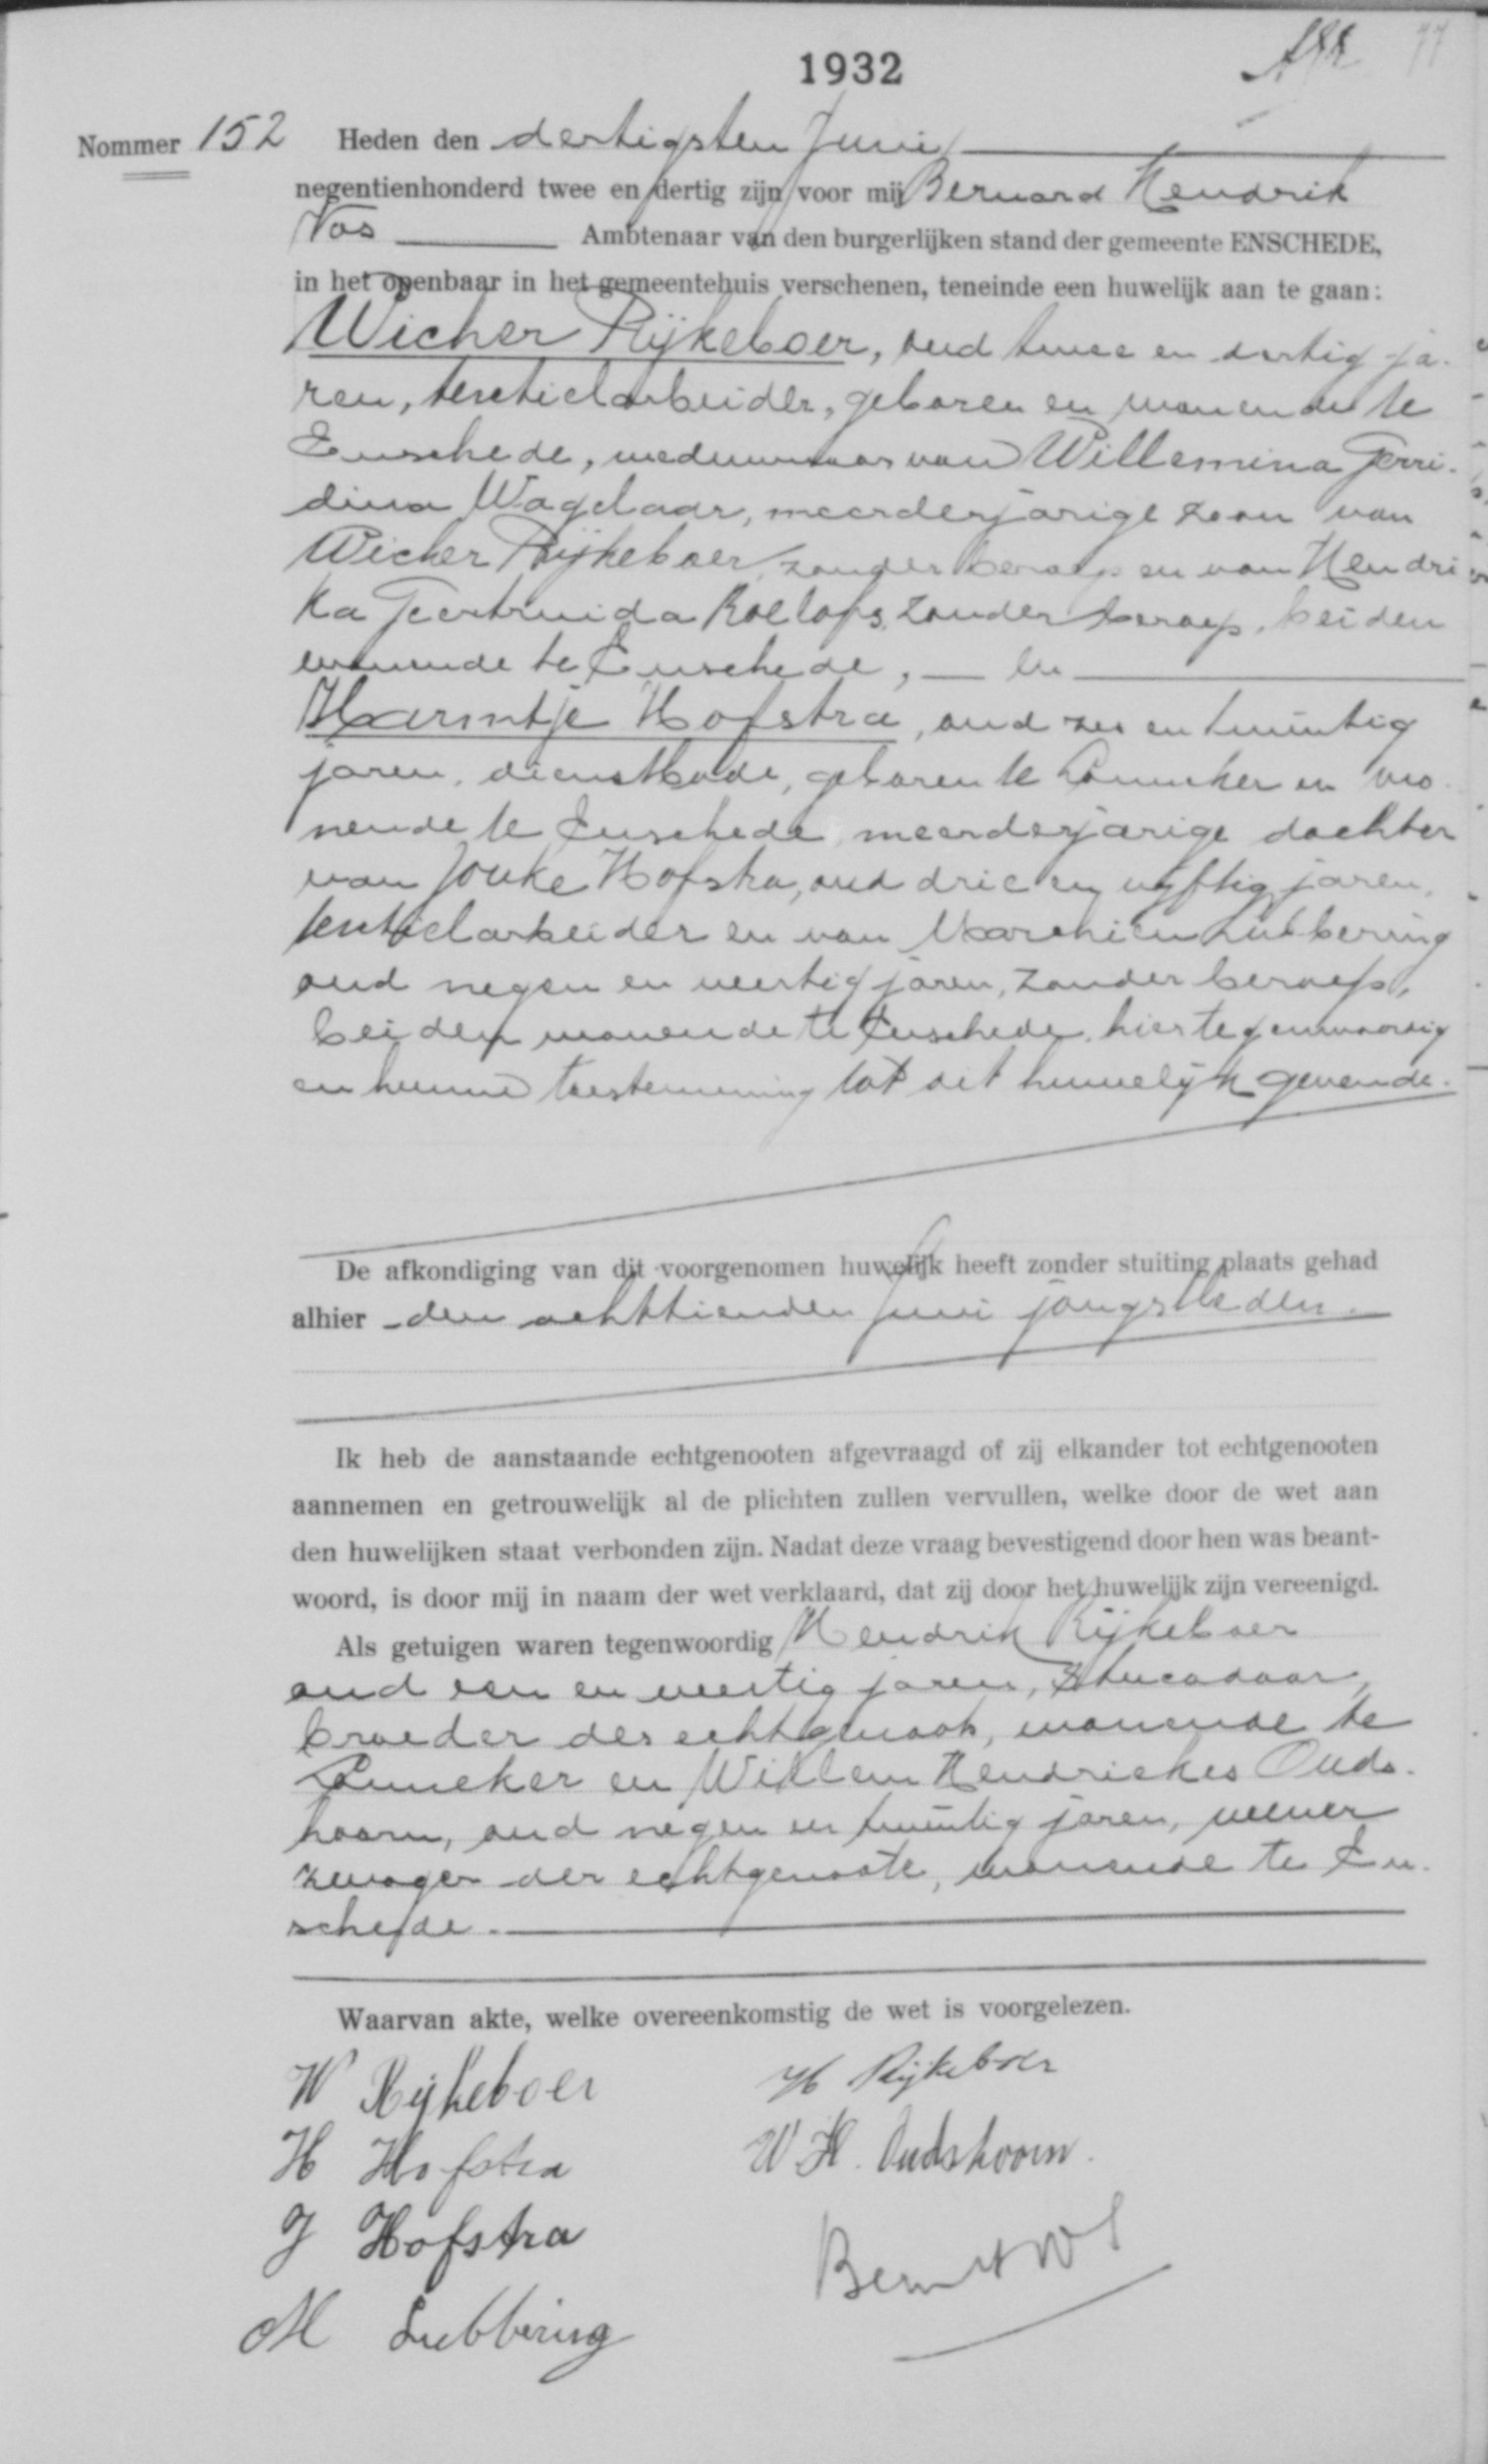 1932
77
Nommer 152 Heden den dertigsten Juni
negentienhonderd twee en dertig zijn voor mij Bernard Hendrik
Vos Ambtenaar van den burgerlijken stand der gemeente ENSCHEDE,
in het openbaar in het gemeentehuis verschenen, teneinde een huwelijk aan te gaan:
Wicher Rijkeboer, oud twee en dertig ja-
ren, textielarbeider, geboren en wonende te
Enschede, weduwnaar van Willemina Gerri-
dina Wagelaar, meerderjarige zoon van
Wicher Rijkeboer, zonder beroep en van Hendri
ka Geertruida Roelofs, zonder beroep, beiden
wonende te Enschede, en
Harmtje Hofstra, oud zes en twintig
jaren, dienstbode, geboren te Lonneker en wo-
nende te Enschede, meerderjarige dochter
van Jouke Hofstra, oud drie en vijftig jaren,
textielarbeider en van Marchien Lubbering
oud negen en veertig jaren, zonder beroep,
beiden wonende te Enschede, hier tegenwoordig
en hunne toestemming tot dit huwelijk gevende.
De afkondiging van dit voorgenomen huwelijk heeft zonder stuiting plaats gehad
alhier den achttienden Juni jongstleden.
Ik heb de aanstaande echtgenooten afgevraagd of zij elkander tot echtgenooten
aannemen en getrouwelijk al de plichten zullen vervullen, welke door de wet aan
den huwelijken staat verbonden zijn. Nadat deze vraag bevestigend door hen was beant-
woord, is door mij in naam der wet verklaard, dat zij door het huwelijk zijn vereenigd.
Als getuigen waren tegenwoordig Hendrik Rijkeboer
oud een en veertig jaren, stucadoor,
broeder des echtgenoots, wonende te
Lonneker en Willem Hendrickes Ouds-
hoorn, oud negen en twintig jaren, wever
zwager der echtgenoote, wonende te En-
schede.
Waarvan akte, welke overeenkomstig de wet is voorgelezen.
W Rijkeboer H Rijkeboer
H Hofstra W H. Oudshoorn.
J Hofstra
M Lubbering